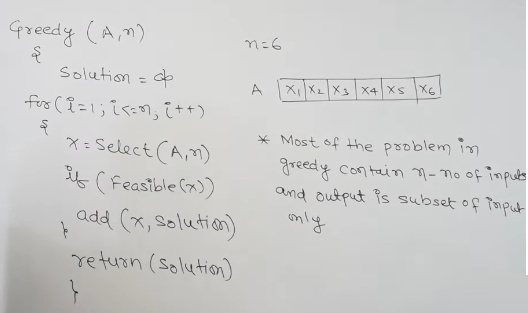 Greedy (A,n)
{
Solution = ф
for(i=1; i<=n; i++)
{
x = Select (A,n)
if (Feasible(x))
add (x, Solution)
}
return (Solution)
}
n=6
A x1 x2 x3 x4 x5 x6
* Most of the problem in
greedy contain n-no of inputs
and output is subset of input
only